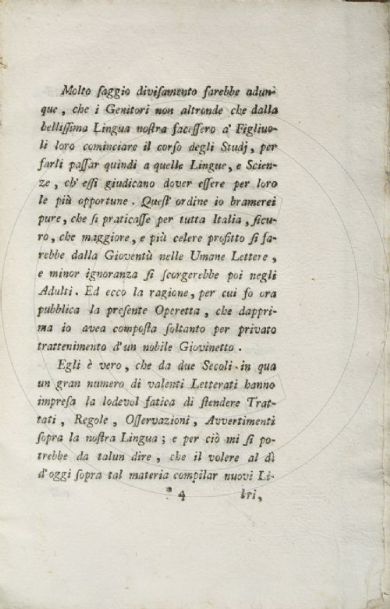 Molto saggio divisamento sarebbe adun-
que, che i Genitori non altronde che dalla
bellissima Lingua nostra facessero a' Figliuo-
li loro cominciare il corso degli Studj, per
farli passar quindi a quelle Lingue, e Scien-
ze, ch' essi giudicano dover essere per loro
le più opportune. Quest' ordine io bramerei
pure, che si praticasse per tutta Italia, sicu-
ro, che maggiore, e più celere profitto si fa-
rebbe dalla Gioventù nelle Umane Lettere,
e minor ignoranza si scorgerebbe poi negli
Adulti. Ed ecco la ragione, per cui fo ora
pubblica la presente Operetta, che dappri-
ma io avea composta soltanto per privato
trattenimento d'un nobile Giovinetto.
Egli è vero, che da due Secoli in qua
un gran numero di valenti Letterati hanno
impresa la lodevol fatica di stendere Trat-
tati, Regole, Osservazioni, Avvertimenti
sopra la nostra Lingua; e per ciò mi si po-
trebbe da talun dire, che il volere al dì
d'oggi sopra tal materia compilar nuovi Li-
* 4 bri,